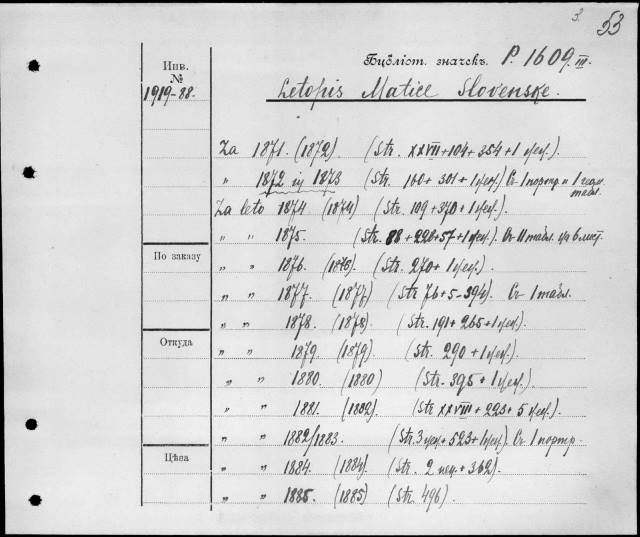 3.
53
Бцбліст. значекъ. P. 1609. III.
Инв.
№
1919-88.
Letopis Matice Slovenske.
Za 1871. (1872) (Str. XXVII+104+354+1 неч.).
„ 1872 in 1873 (Str. 160+301+1 неч.) Съ 1 портр. и 1 табл.
Za leto 1874 (1874) (Str. 109+370+1 неч.).
„ „ 1875. (Str. 88+226+57+1 неч.). Съ 11 табл.
По заказу
„ „ 1876. (1876) (Str. 270+1 неч.)
„ „ 1877. (1877) (Str 76+5-394). Съ 1 табл.
„ „ 1878. (1878) (Str. 191+265+1 неч.).
Откуда
„ „ 1879. (1879). (Str. 290+1 неч.).
„ „ 1880. (1880) (Str. 395+1 неч.).
„ „ 1881. (1882) (Str XXVIII+223+5 неч.).
„ „ 1882/1883. (Str. 3 неч+523+1 неч.). Съ 1 портр.
Цѣна
„ „ 1884. (1884). (Str. 2 неч+362).
„ „ 1885. (1885) (Str. 496).